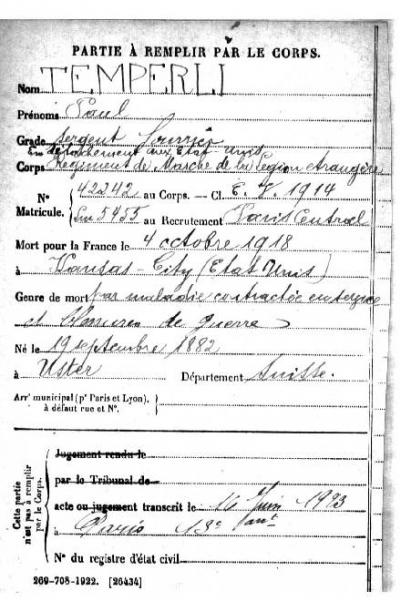 PARTIE À REMPLIR PAR LE CORPS.
Nom TEMPERLI
Prénoms Paul
Grade Sergent fourrier
En détachement aux Etats unis
Corps Régiment de Marche de la Légion etrangère
N° Matricule. 42242 au Corps. — Cl. E. V. 1914
5453 au Recrutement Paris Central
Mort pour la France le 4 octobre 1918
à Kansas-City (Etat Unis)
Genre de mort par maladie contractée en service
et blessures de guerre
Né le 19 septembre 1882
à Uster Département Suisse.
Arr' municipal (p' Paris et Lyon),
à défaut rue et N°.
Cette partie n'est pas à remplir par le Corps.
Jugement rendu le
par le Tribunal de
acte ou jugement transcrit le 16 Juin 1923
à Paris 13e arrt
N° du registre d'état civil
269-708-1922. [26434]